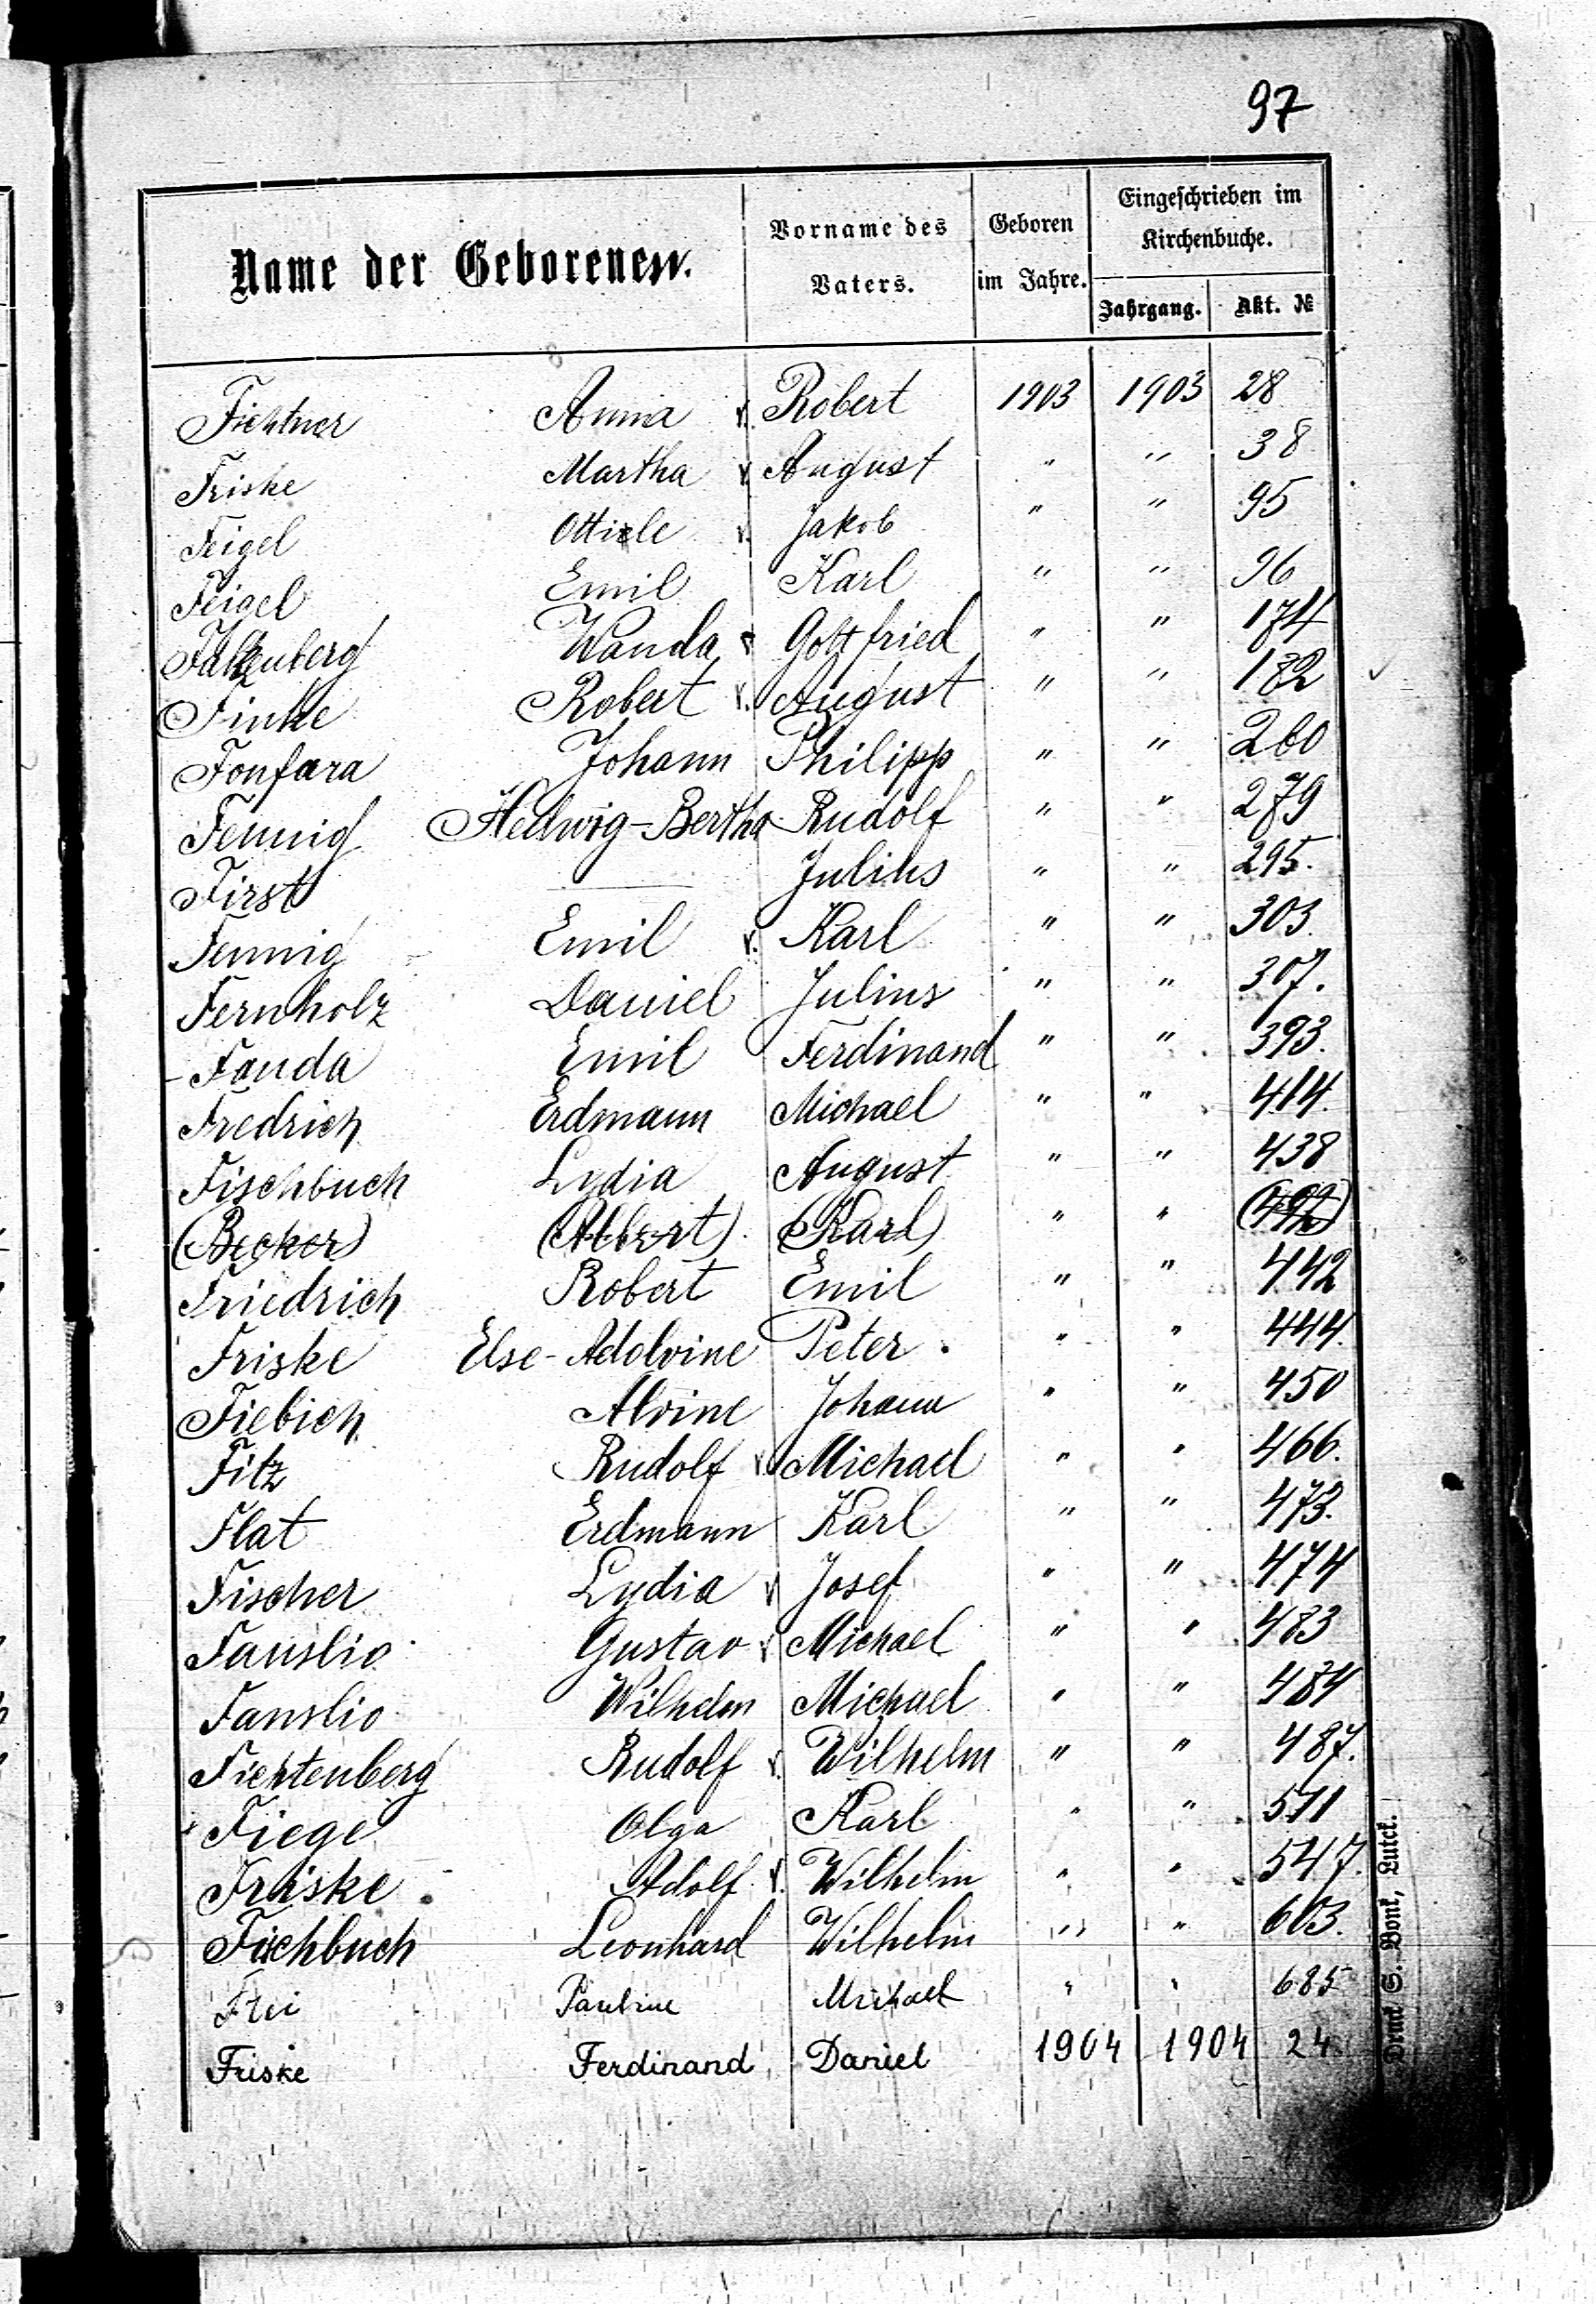 97
Name der Geborenen.
Vorname des Vaters.
Geboren im Jahre.
Eingeschrieben im Kirchenbuche.
Jahrgang. Akt. №
Fichtner Anna v. Robert 1903 1903 28
Friske Martha v. August " " 38
Feigel Ottiele v. Jakob " " 95
Feigel Emil Karl " " 96
Falkenberg Wanda v Gottfried " " 174
Finke Robert v. August " " 182
Fonfara Johann Philipp " " 260
Fennig Hedwig-Bertha Rudolf " " 279
First — Julius " " 295.
Fennig Emil v. Karl " " 303.
Fernholz Daniel Julius " " 307.
Fauda Emil Ferdinand " " 393.
Fredrich Erdmann Michael " " 414.
Fischbuch Lydia August " " 438
(Becker) (Albert). (Karl) " "
Friedrich Robert Emil " " 442
Friske Else-Adolvine Peter. " " 444.
Fiebich Alvine Johann " " 450
Fitz Rudolf v. Michael " " 466.
Flat Erdmann Karl " " 473.
Fischer Lydia v Josef " " 474
Fanslio Gustav v Michael " " 483
Fanslio Wilhelm Michael " " 484
Fichtenberg Rudolf v. Wilhelm " " 487.
Fiege Olga Karl " " 511
Friske. Adolf v. Wilhelm " " 547.
Fischbuch Leonhard Wilhelm " " 603.
Frei Pauline Michael " " 685
Friske Ferdinand Daniel 1904 1904 24.
Druck S. Bonk, Lutck.